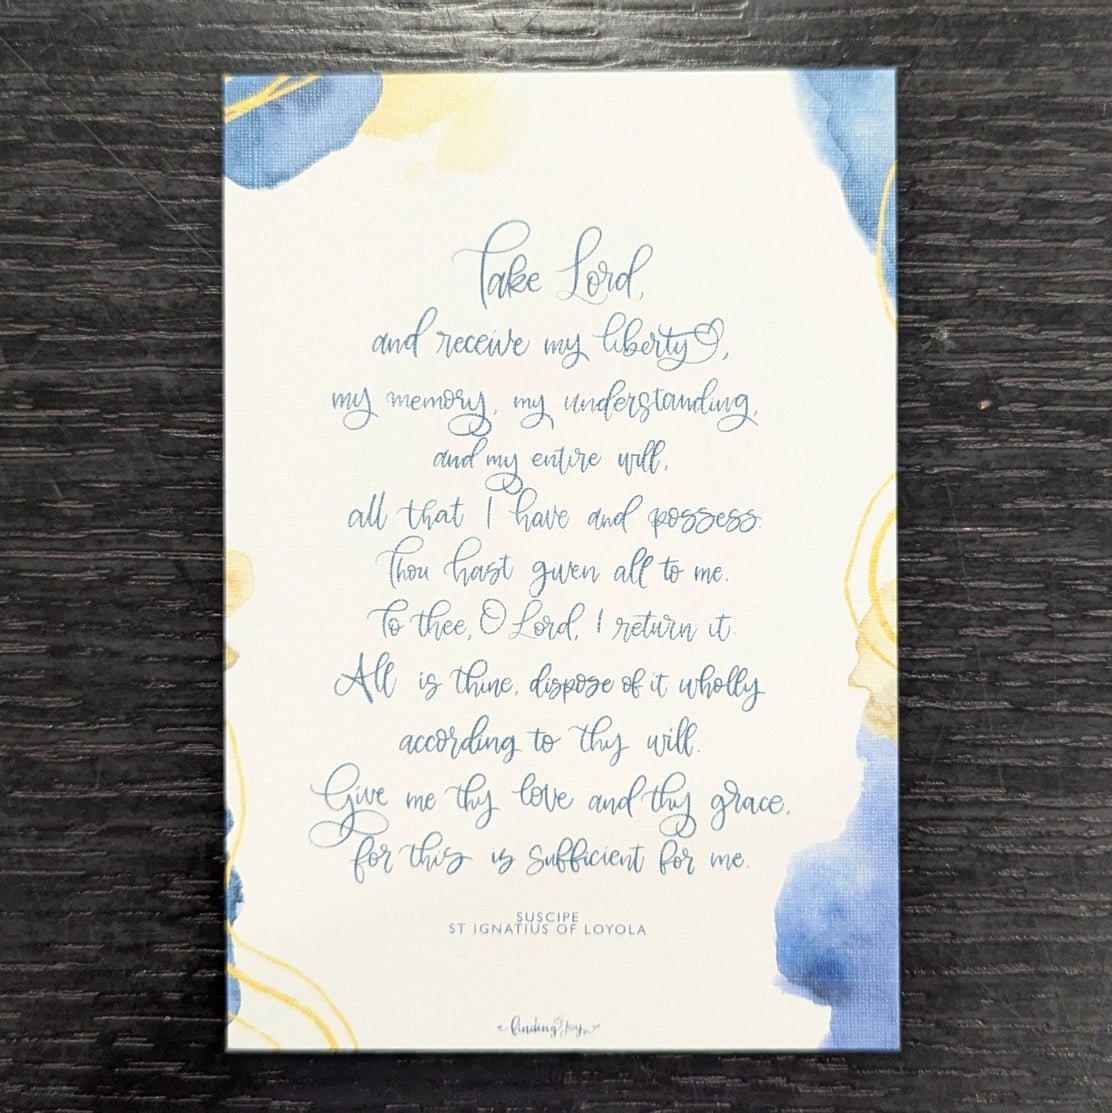 Take Lord,
and receive my liberty,
my memory, my understanding,
and my entire will,
all that I have and possess.
Thou hast given all to me.
To thee, O Lord, I return it.
All is thine, dispose of it wholly
according to thy will.
Give me thy love and thy grace,
for this is sufficient for me.
SUSCIPE
ST IGNATIUS OF LOYOLA
finding joy